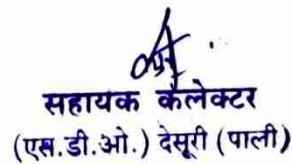 सहायक कैलेक्टर
(एस.डी.ओ.) देसूरी (पाली)